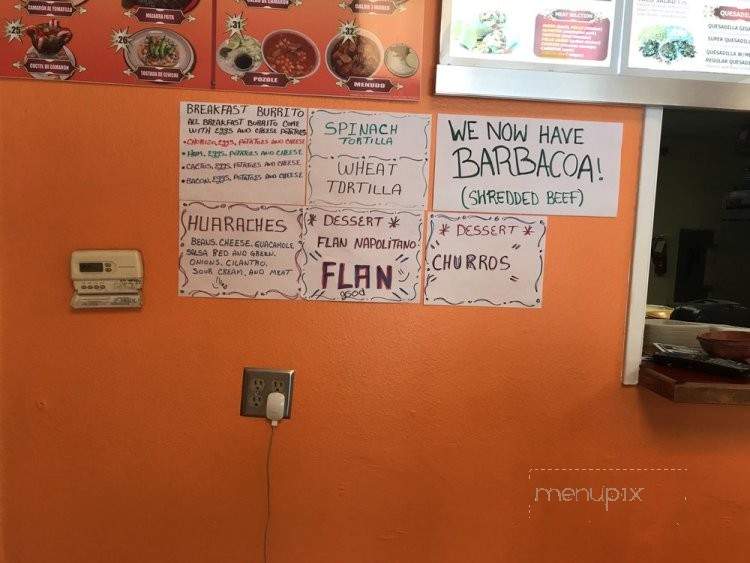 CAMARON AL TOMATILLO
MOJARRA FRITA
COCTEL DE CAMARON
TOSTADA DE CEVICHE
CALDO DE CAMARON
CALDO 7 MARES
POZOLE
MENUDO
MEAT SELECTION
QUESADILLA
QUESADILLA
SUPER QUESADILLA
QUESADILLA
REGULAR QUESADILLA
BREAKFAST BURRITO
ALL BREAKFAST BURRITO COME
WITH EGGS AND CHEESE POTATOES
• CHORIZO, EGGS, POTATOES AND CHEESE
• HAM, EGGS, POTATOES AND CHEESE
• CACTUS, EGGS, POTATOES AND CHEESE
• BACON, EGGS, POTATOES AND CHEESE
SPINACH
TORTILLA
WHEAT
TORTILLA
WE NOW HAVE
BARBACOA!
(SHREDDED BEEF)
HUARACHES
BEANS, CHEESE, GUACAMOLE
SALSA RED AND GREEN,
ONIONS, CILANTRO,
SOUR CREAM, AND MEAT
* DESSERT *
FLAN NAPOLITANO
FLAN
good
* DESSERT *
CHURROS
menupix